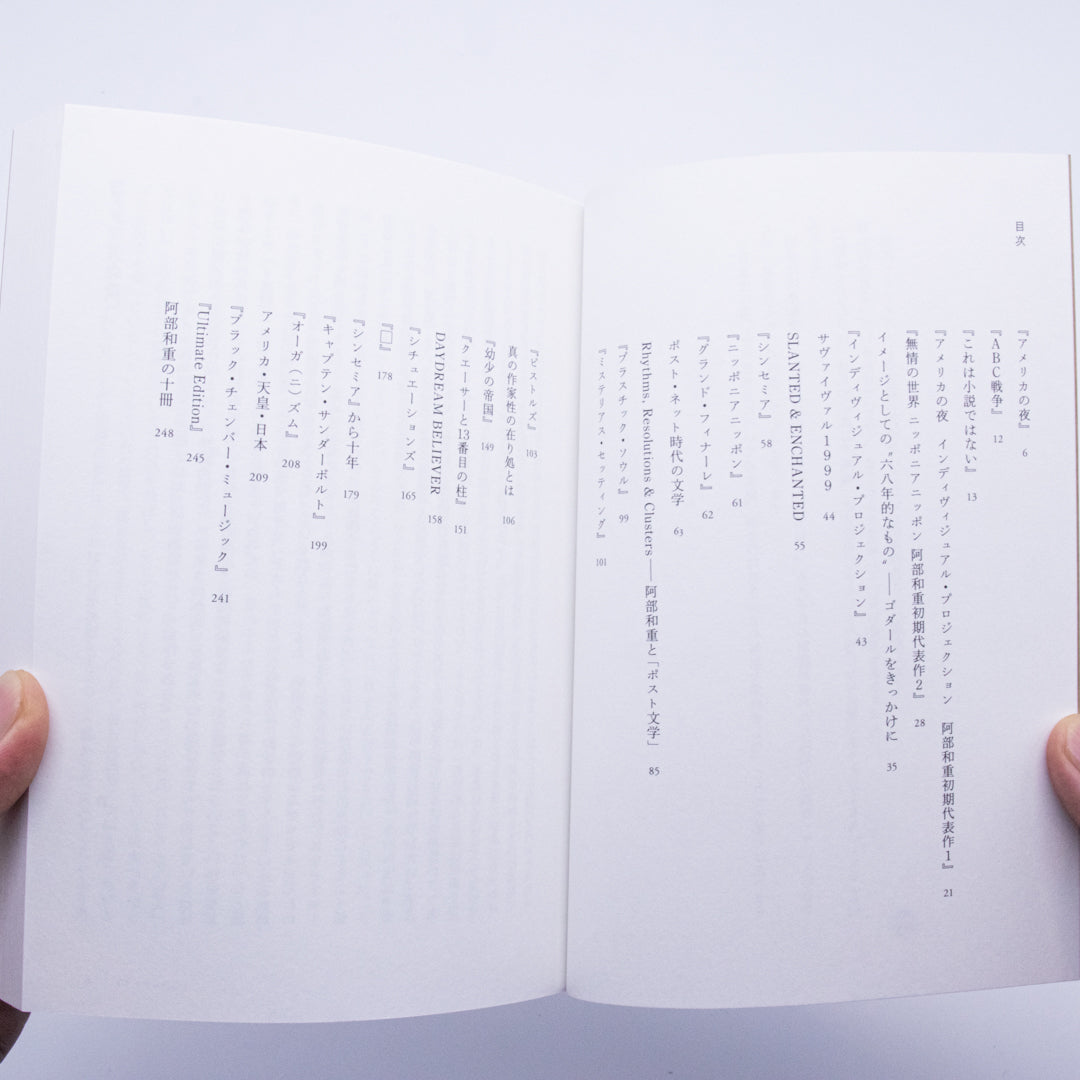 目次
『アメリカの夜』 6
『ABC戦争』 12
『これは小説ではない』 13
『アメリカの夜 インディヴィジュアル・プロジェクション 阿部和重初期代表作1』 21
『無情の世界 ニッポニアニッポン 阿部和重初期代表作2』 28
イメージとしての〝六八年的なもの〟——ゴダールをきっかけに 35
『インディヴィジュアル・プロジェクション』 43
サヴァイヴァル1999 44
SLANTED & ENCHANTED 55
『シンセミア』 58
『ニッポニアニッポン』 61
『グランド・フィナーレ』 62
ポスト・ネット時代の文学 63
Rhythms, Resolutions & Clusters——阿部和重と「ポスト文学」 85
『プラスチック・ソウル』 99
『ミステリアス・セッティング』 101
『ピストルズ』 103
真の作家性の在り処とは 106
『幼少の帝国』 149
『クエーサーと13番目の柱』 151
DAYDREAM BELIEVER 158
『シチュエーションズ』 165
『□』 178
『シンセミア』から十年 179
『キャプテン・サンダーボルト』 199
『オーガ(ニ)ズム』 208
アメリカ・天皇・日本 209
『ブラック・チェンバー・ミュージック』 241
『Ultimate Edition』 245
阿部和重の十冊 248